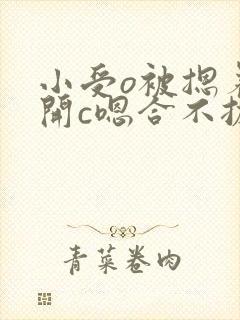 小受o被摁
開c嗯合不
青菜卷肉